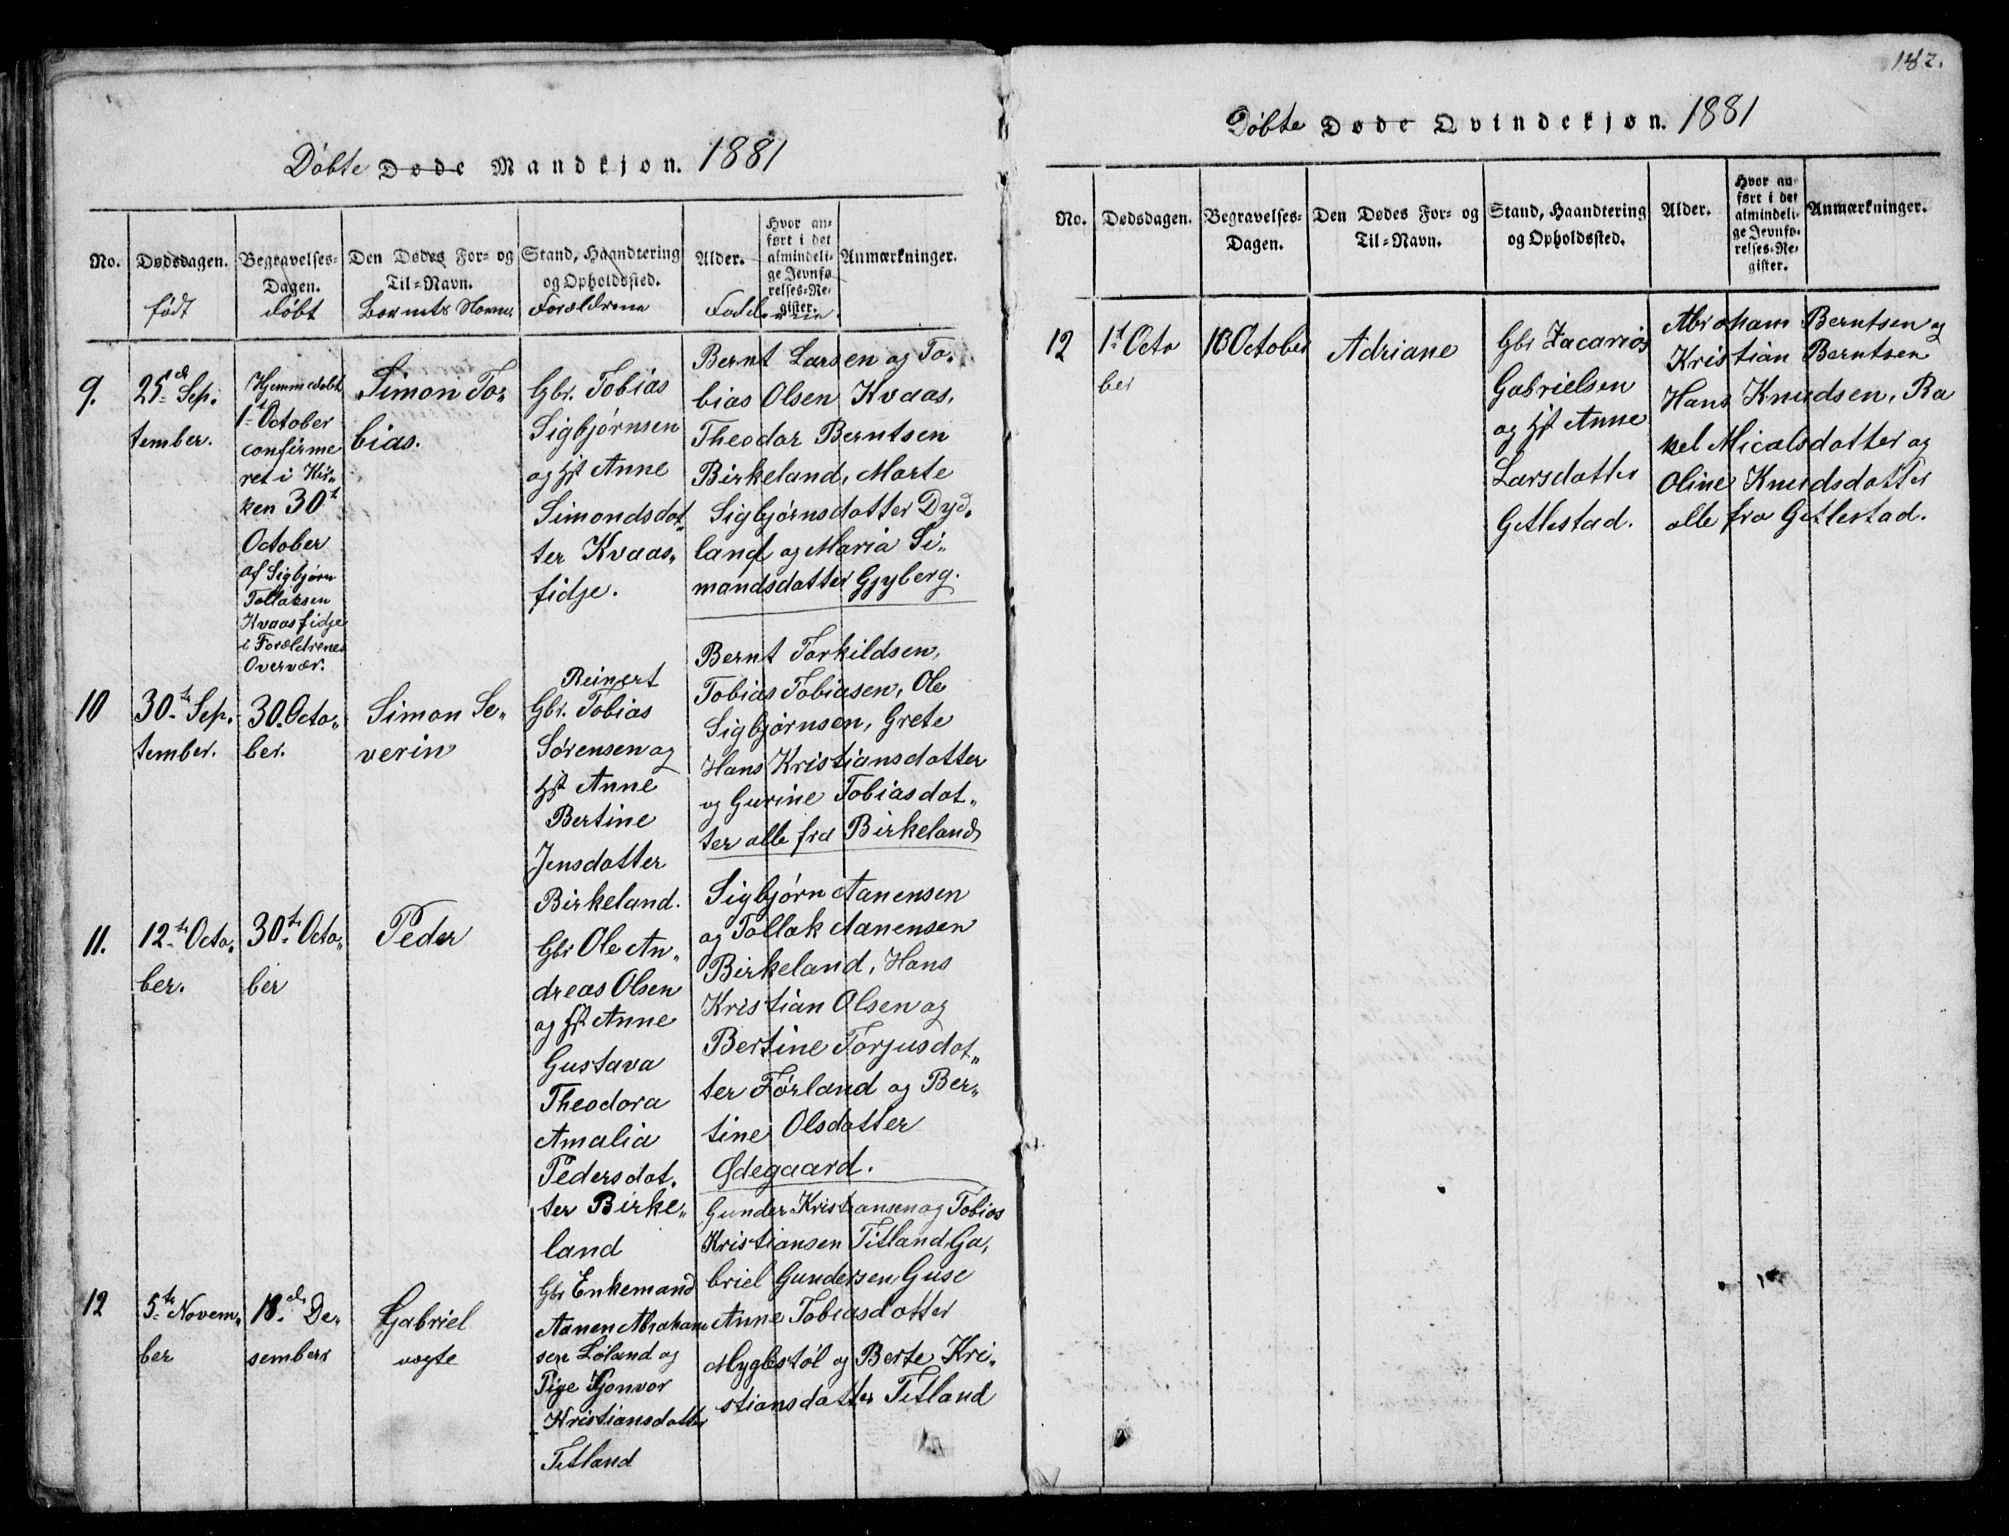 182.
Døbte Døde Mandkjøn. 1881
No.
Dødsdagen.
født
Begravelses-
Dagen.
døbt
Den Dødes For- og
Til-Navn.
Barnets Navne
Stand, Haandtering
og Opholdssted.
Forældrene
Alder.
Hvor an-
ført i det
almindeli-
ge Jevnfø-
relses-Re-
gister.
Anmærkninger.
9.
25d Sep.
tember.
Hjemmedøbt
1t October
confirme
ret i Kir„
ken 30t
October
af Sigbjørn
Tollaksen
Kvaasfidje
i Forældrenes
Overvær.
Simon To-
bias.
Gbr. Tobias
Sigbjørnsen
og Hst Anne
Simondsdot„
ter Kvaas„
fidje.
Bernt Larsen og To-
bias Olsen Kvaas,
Theodor Berntsen
Birkeland, Marte
Sigbjørnsdotter Dyd.
land og Maria Si„
mandsdotter Gjyberg.
10
30te Sep.
tember.
30. Octo„
ber.
Simon Se„
verin
Reinert
Gbr. Tobias
Sørensen og
Hst Anne
Bertine
Jensdotter
Birkeland.
Bernt Torkildsen,
Tobias Tobiasen, Ole
Sigbjørnsen, Grete
Hans Kristiansdotter
og Gurine Tobiasdot„
ter alle fra Birkeland
11.
12te Octo.
ber.
30te Octo„
ber
Peder
Gbr Ole An„
dreas Olsen
og Hst Anne
Gustava
Theodora
Amalia
Pedersdot.
ter Birke„
land
Sigbjørn Aanensen
og Tollak Aanensen
Birkeland, Hans
Kristian Olsen og
Bertine Torjusdot„
ter Førland og Ber„
tine Olsdotter
Ødegaard.
12
5te Novem„
ber
18d De„
sember
Gabriel
uægte
Gbr Enkemand
Aanen Abraham
sen Løland og
Pige Gonvor
Kristiansdotter
Titland
Gunder Kristiansen og Tobias
Kristiansen Titland, Ga,
briel Gundersen Guse
Anne Tobiasdotter
Myglestøl og Berte Kri„
stiansdotter Titland
Døbte Døde Qvindekjøn. 1881
No.
Dødsdagen.
Begravelses-
Dagen.
Den Dødes For- og
Til-Navn.
Stand, Haandtering
og Opholdssted.
Alder.
Hvor an-
ført i det
almindeli-
ge Jevnfø-
relses-Re-
gister.
Anmærkninger.
12
1t Octo
ber
18 October
Adriane
Gbr Zacarias
Gabrielsen
og Hst Anne
Larsdotter
Getlestad.
Abraham Berntsen og
Kristian Berntsen
Hans Knudsen, Ra
kel Micalsdotter og
Oline Knudsdotter
alle fra Getlestad.